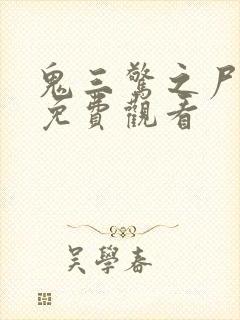 鬼三驚之尸
免費觀看
吴學春